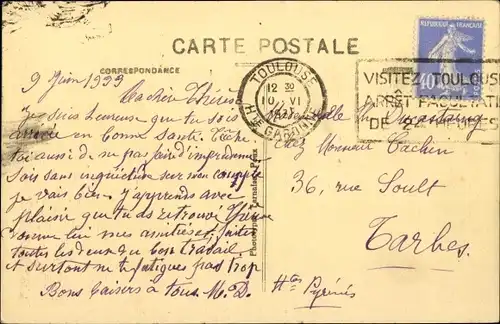 CARTE POSTALE
CORRESPONDANCE
RÉPUBLIQUE FRANÇAISE
40
TOULOUSE
12 30
10 VI
Hte GARONNE
VISITEZ TOULOUSE
ARRÊT FACULTATIF
DE HEURES
9 Juin 1933
Ma chère Thérèse
Je suis heureuse que tu sois
arrivée en bonne santé. Tâche
toi aussi de ne pas faire d'imprudence
Sois sans inquiétude sur mon compte
je vais bien. J'apprends avec
plaisir que tu as retrouvé
donne lui mes amitiés, faites
toutes les deux du bon travail
et surtout ne te fatigues pas trop
Bons baisers à tous M.D.
Mademoiselle
Chez Monsieur Cachin
36, rue Soult
Tarbes
Htes Pyrénées